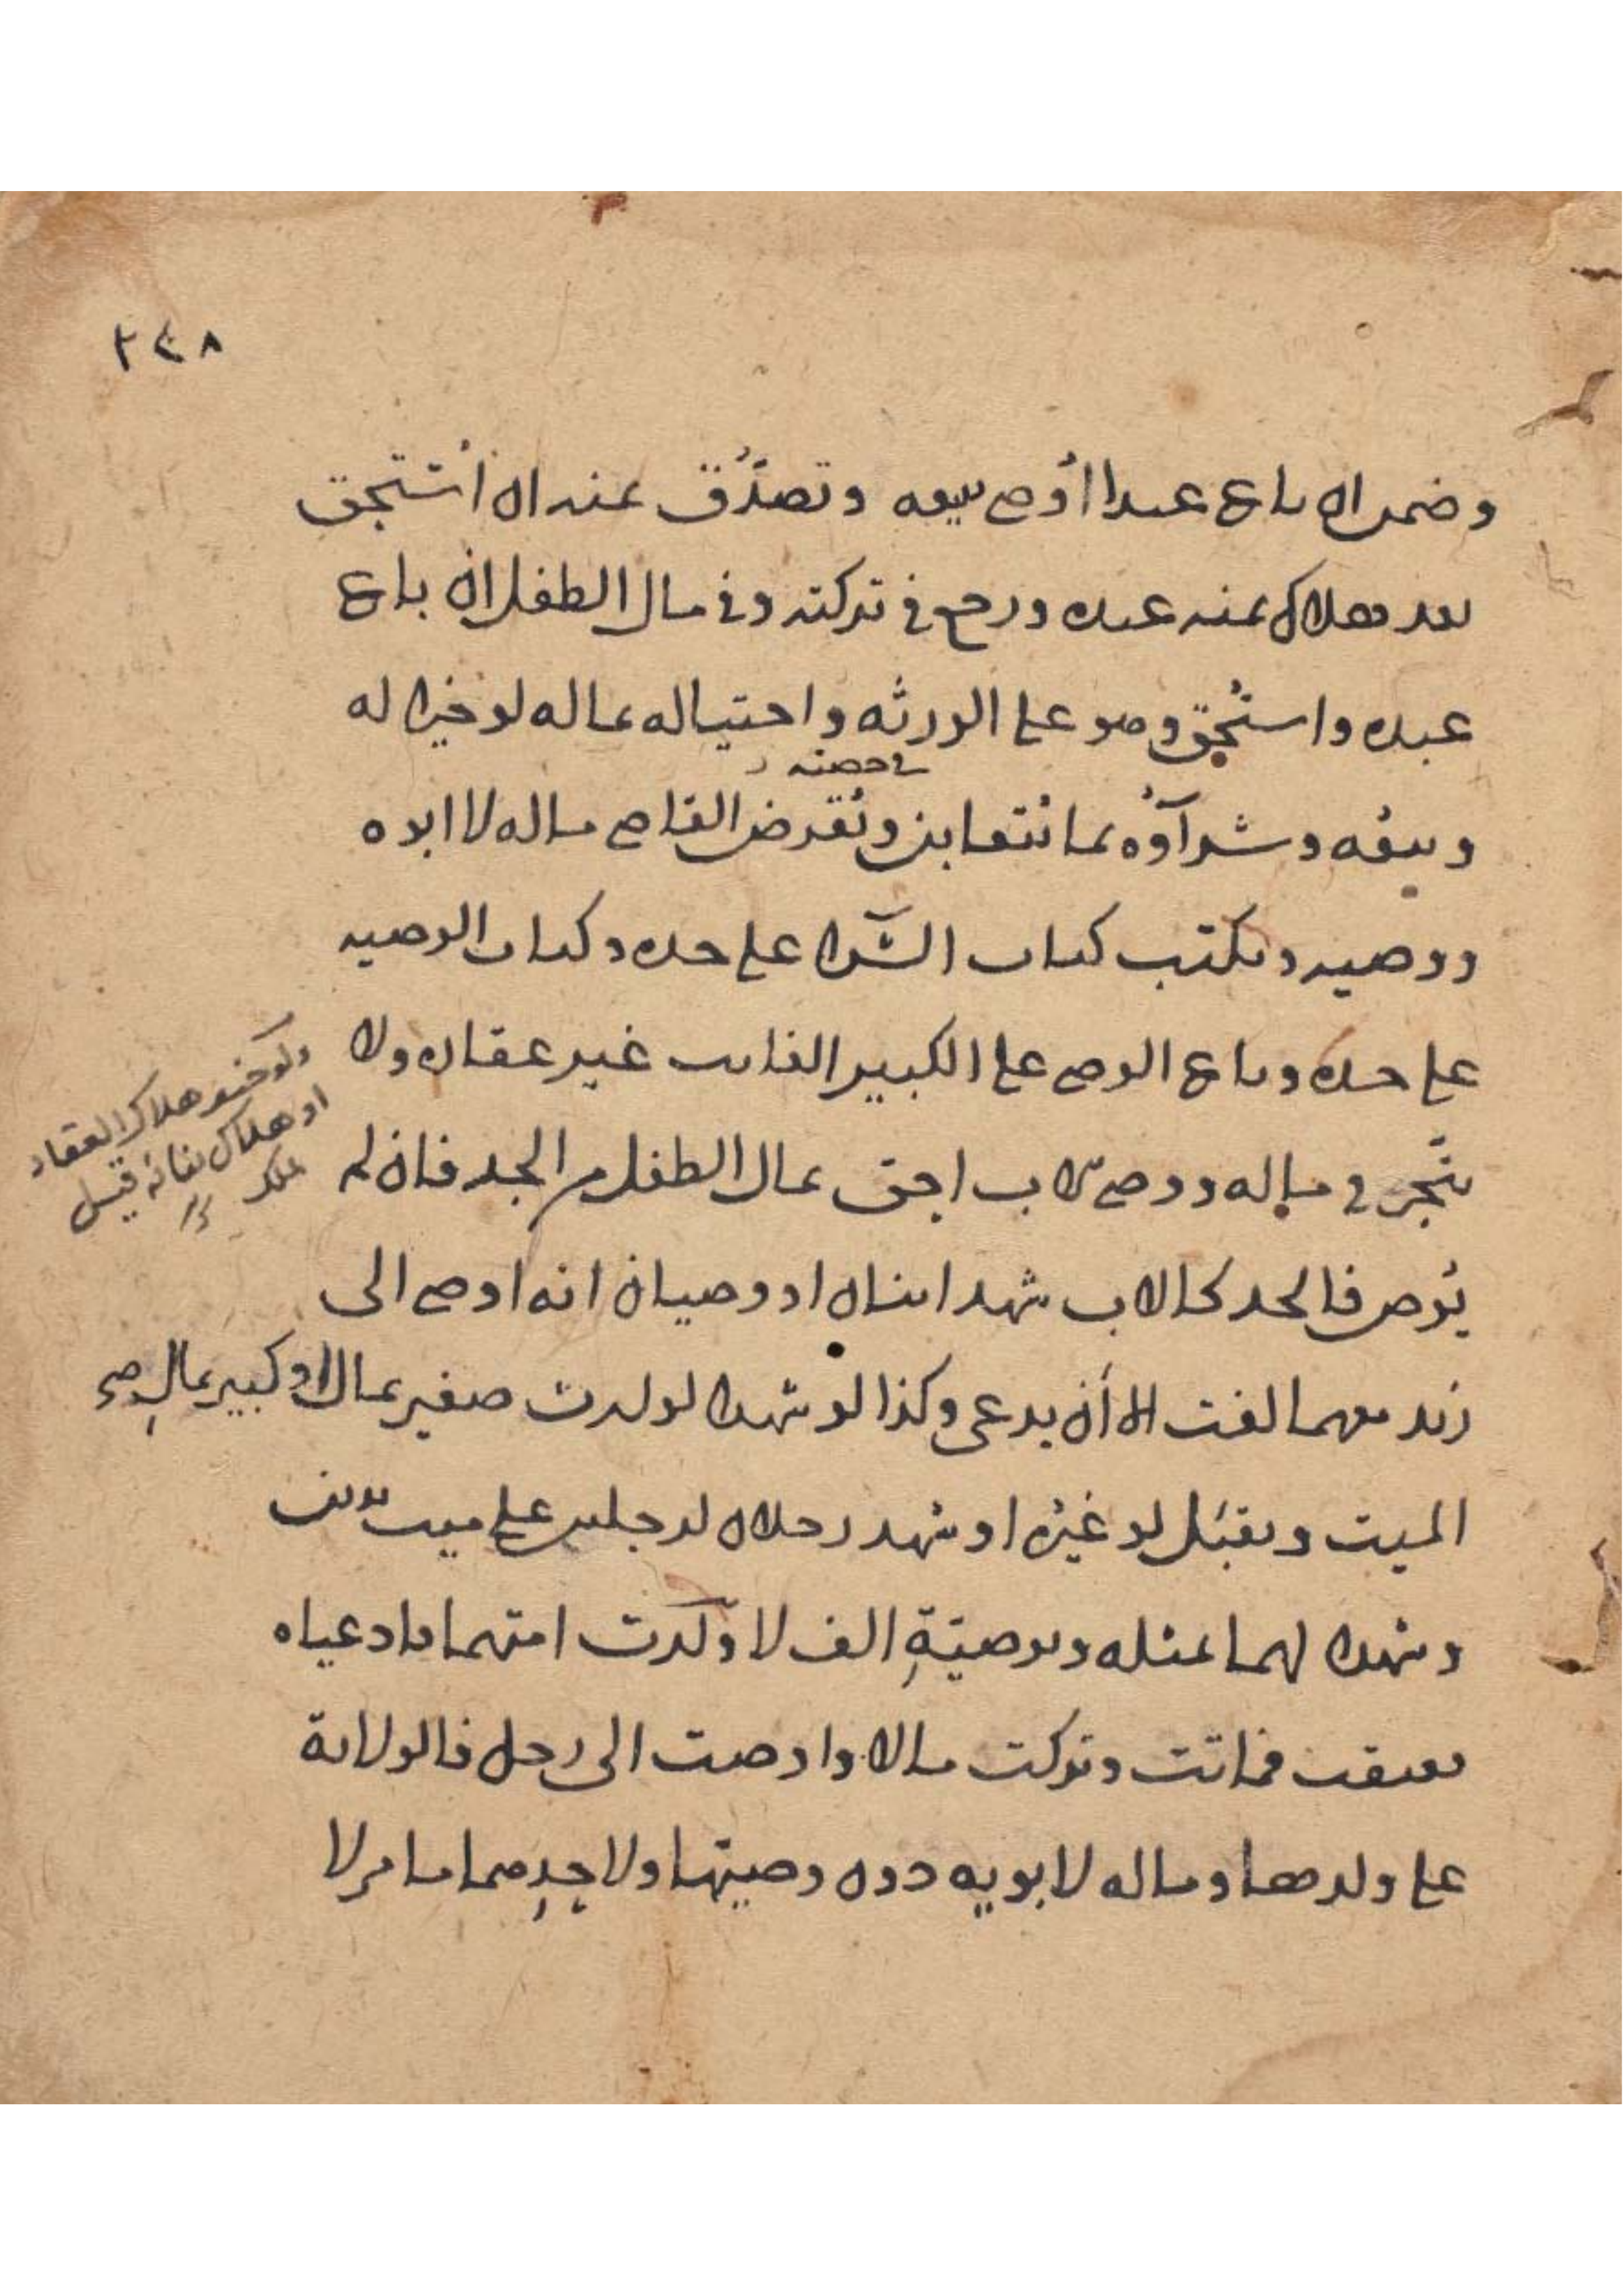 ٢٤٨
وضمن ان باع عبدا أوصى ببيعه وتصدق بثمنه ان أستحق
بعد هلاك ثمنه عنده ورجع في تركته وفي مال الطفل ان باع
عبده واستحق وهو على الورثه واحتياله بماله لو خيرا له
في حصته
وبيعه وشرآؤه بما يتغابن ويقرض القاضي ماله لا ابوه
ووصيه ويكتب كتاب الشرا على حده وكتاب الوصيه
على حده وباع الوصي على الكبير الغائب غير عقاره ولا
يتجر في ماله ووصي الاب احق بمال الطفل من الجد فان لم
يوص فالجد كالاب شهد ابناه او وصيان انه اوصى الى
زيد معهما لغت الا أن يدعى وكذا لو شهدا لولدت صغير بمال او كبير بمال
الميت وتقبل لو غيره او شهد رجلان لرجلين على ميت بدين
وشهدا لهما بمثله وبوصية الف لا ولدت امتهما فادعياه
فعتقت فماتت وتركت مالا واوصت الى رجل فالولاية
على ولدها وماله لابويه دون وصيتها ولاحدهما ما لا
ولو خيف هلاك العقار
او هلاك بنائه قيل
يملك